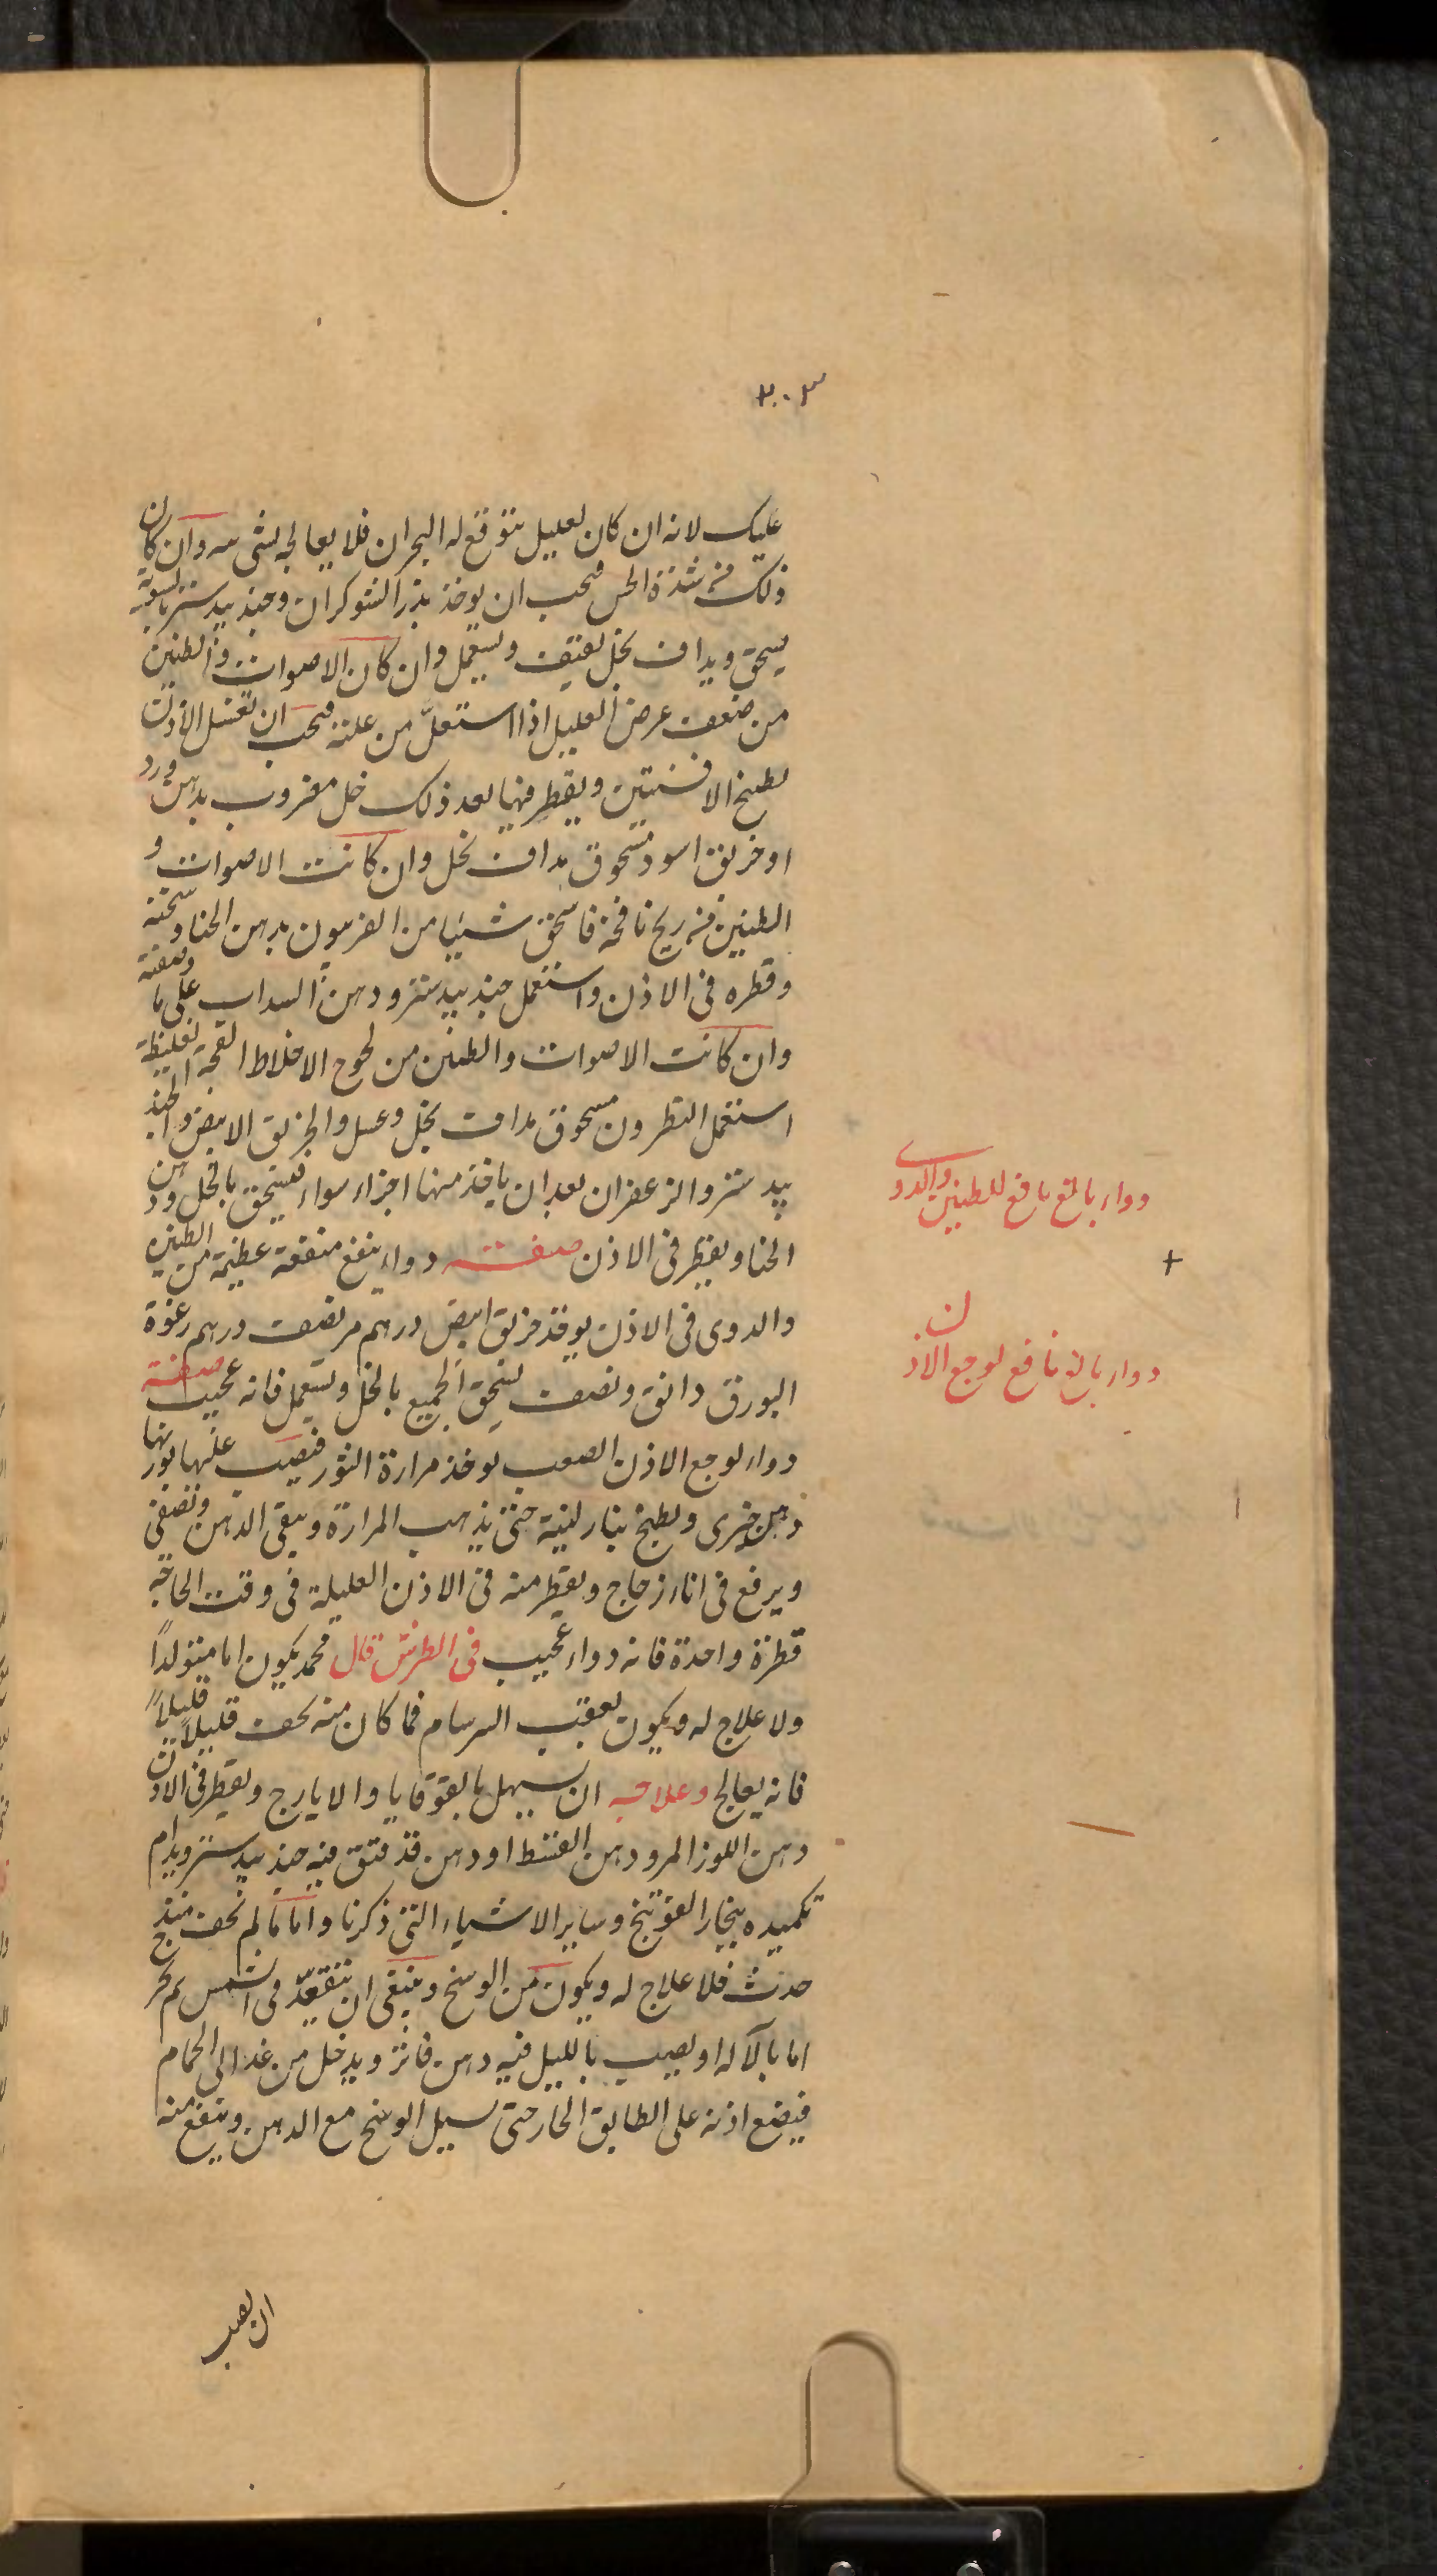 ٣٠٣
عليك لانه ان كان لعليل يتوقع له البحران فلا يعالجه بشى سه وان كان
ذلك من شدة الحس فيجب ان يوخذ بذر الشوكران وجندبيدستر بالسوية
يسحق ويداف بخل ثقيف ويستعمل وان كان الاصوات والطنين
من ضعف عرض العليل اذا استعلّ من علته فيجب ان تغسل الاذن
بطبيخ الافسنتين ويقطر فيها بعد ذلك خل مضروب بدهن ورد
او خربق اسود مسحوق مداف بخل وان كانت الاصوات و
الطنين من ريح نافخة فاسحق شيئا من الفربيون بدهن الحنا وسخنه
وقطره فى الاذن واستعمل جندبيدستر ودهن السداب على ما وصفته
وان كانت الاصوات والطنين من لحوج الاخلاط اللزجة الغليظة
استعمل النطرون مسحوق مداف بخل وعسل والخربق الابيض والجند
بيدستر والزعفران بعد ان ياخذ منها اجزاء سواء فيسحق بالخل ودهن
الحنا ويقطر فى الاذن صفت دواء ينفع منفعة عظيمة من الطنين
والدوى فى الاذن يوخذ خربق ابيض درهم مر نصف درهم رغوة
البورق دانق ونصف يسحق الجميع بالخل ويستعمل فانه عجيب صفة
دواء لوجع الاذن الصعب يوخذ مرارة الثور فيصب عليها بوزنها
دهن خيرى ويطبخ بنار لينة حتى يذهب المرارة ويبقى الدهن ويصفى
ويرفع فى اناء زجاج ويقطر منه فى الاذن العليلة فى وقت الحاجه
قطرة واحدة فانه دواء عجيب فى الطرش قال محمد يكون اما متولداً
ولا علاج له ويكون بعقب السرسام فما كان منه يخف قليلاً قليلاً
فانه يعالج وعلاجه ان يسهل بالقوقايا والايارج ويقطر فى الاذن
دهن اللوز المر ودهن القسط او دهن قد فتق فيه جندبيدستر ويدام
تكميده ببخار الفوتنج وساير الاشياء التى ذكرنا واما ما لم يخف منذ
حدث فلا علاج له ويكون من الوسخ وينبغى ان تتفقدّ فى الشمس ثم يخرج
اما بالآلة او يصب بالليل فيه دهن فاتر ويدخل من غد الى الحمام
فيضع اذنه على الطابق الحار حتى يسيل الوسخ مع الدهن وينفع منه
ان يصب
دواء بالغ نافع للطنين والدوى
دواء بالغ نافع لوجع الاذن